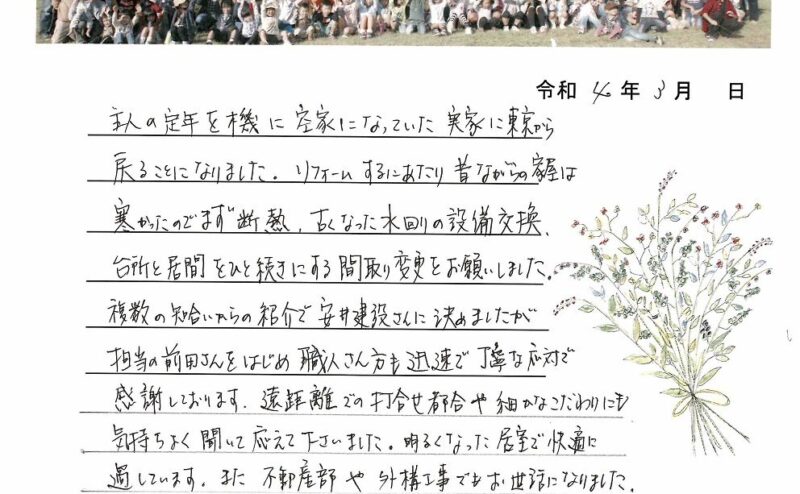 令和 4 年 3 月 日
主人の定年を機に空家になっていた実家に東京から
戻ることになりました。リフォームするにあたり昔ながらの家屋は
寒かったのでまず断熱、古くなった水回りの設備交換、
台所と居間をひと続きにする間取り変更をお願いしました。
複数の知合いからの紹介で安井建設さんに決めましたが
担当の前田さんをはじめ職人さん方も迅速で丁寧な応対で
感謝しております。遠距離での打合せ都合や細かなこだわりにも
気持ちよく聞いて応えて下さいました。明るくなった居室で快適に
過しています。また不動産部や外構工事でもお世話になりました。